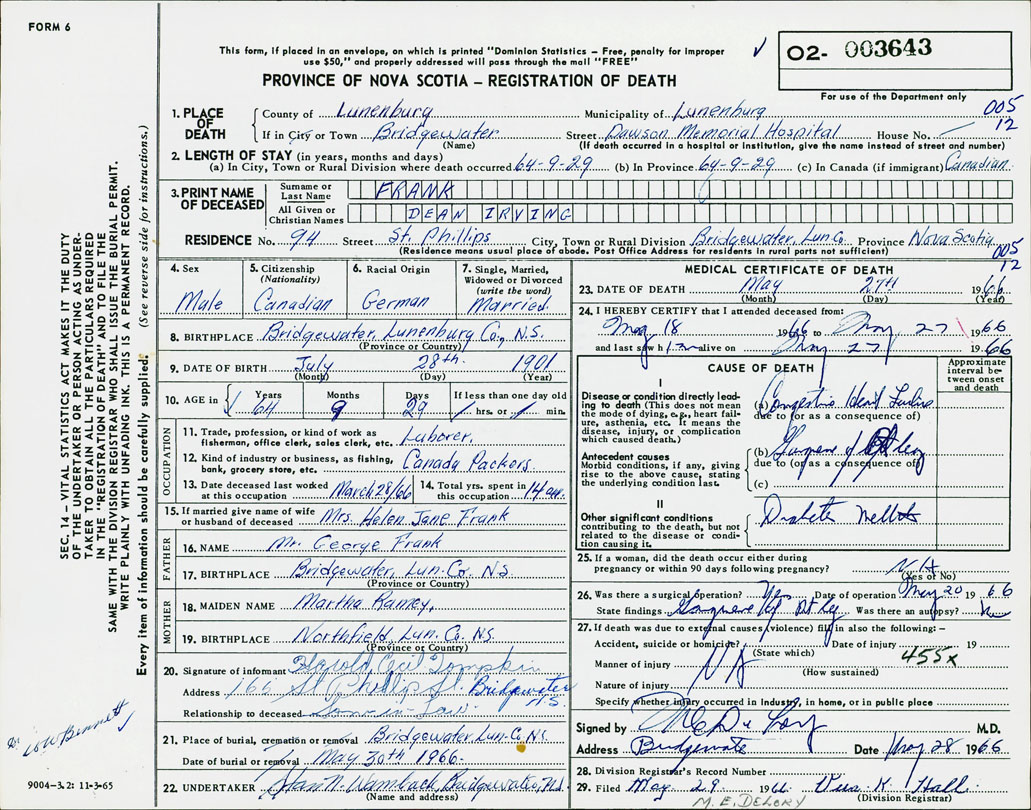 FORM 6
This form, if placed in an envelope, on which is printed "Dominion Statistics – Free, penalty for improper
use $50," and properly addressed will pass through the mail "FREE"
✓ O2- 003643
PROVINCE OF NOVA SCOTIA – REGISTRATION OF DEATH
For use of the Department only
005
12
1. PLACE OF DEATH County of Lunenburg Municipality of Lunenburg
If in City or Town Bridgewater (Name) Street Dawson Memorial Hospital House No.
(If death occurred in a hospital or institution, give the name instead of street and number)
2. LENGTH OF STAY (in years, months and days)
(a) In City, Town or Rural Division where death occurred 64-9-29 (b) In Province 64-9-29 (c) In Canada (if immigrant) Canadian
3. PRINT NAME OF DECEASED Surname or Last Name FRANK
All Given or Christian Names DEAN IRVING
RESIDENCE No. 94 Street St. Phillips City, Town or Rural Division Bridgewater, Lun. Co. Province Nova Scotia
(Residence means usual place of abode. Post Office Address for residents in rural parts not sufficient)
005
12
4. Sex Male
5. Citizenship (Nationality) Canadian
6. Racial Origin German
7. Single, Married, Widowed or Divorced (write the word) Married.
8. BIRTHPLACE Bridgewater, Lunenburg Co., N.S.
(Province or Country)
9. DATE OF BIRTH July 28th. 1901
(Month) (Day) (Year)
10. AGE in Years 64 Months 9 Days 29 If less than one day old hrs. or min.
OCCUPATION
11. Trade, profession, or kind of work as fisherman, office clerk, sales clerk, etc. Laborer.
12. Kind of industry or business, as fishing, bank, grocery store, etc. Canada Packers.
13. Date deceased last worked at this occupation March 28/66 14. Total yrs. spent in this occupation 14
15. If married give name of wife or husband of deceased Mrs. Helen Jane Frank
FATHER
16. NAME Mr. George Frank
17. BIRTHPLACE Bridgewater, Lun. Co. N.S.
(Province or Country)
MOTHER
18. MAIDEN NAME Martha Ramey,
19. BIRTHPLACE Northfield, Lun. Co. N.S.
(Province or Country)
20. Signature of informant Harold Cecil Tompkin
Address 166 St Phillip St. Bridgewater N.S.
Relationship to deceased Son-in-Law
21. Place of burial, cremation or removal Bridgewater, Lun. Co. N.S.
Date of burial or removal May 30th, 1966.
22. UNDERTAKER Wambach, Bridgewater, N.S.
(Name and address)
MEDICAL CERTIFICATE OF DEATH
23. DATE OF DEATH May 27th 1966
(Month) (Day) (Year)
24. I HEREBY CERTIFY that I attended deceased from:
May 18 1966 to May 27 1966
and last saw him alive on May 27 1966
CAUSE OF DEATH
Approximate interval between onset and death
I
Disease or condition directly leading to death (This does not mean the mode of dying, e.g., heart failure, asthenia, etc. It means the disease, injury, or complication which caused death.)
(a) Congestive Heart Failure
due to (or as a consequence of)
Antecedent causes
Morbid conditions, if any, giving rise to the above cause, stating the underlying condition last.
(b) Gangrene of leg
due to (or as a consequence of)
(c)
II
Other significant conditions contributing to the death, but not related to the disease or condition causing it.
Diabetes Mellitus
25. If a woman, did the death occur either during pregnancy or within 90 days following pregnancy? NA
(Yes or No)
26. Was there a surgical operation? Yes Date of operation May 20 1966
State findings Gangrene of Rt leg Was there an autopsy? No
27. If death was due to external causes (violence) fill in also the following: –
Accident, suicide or homicide? (State which) Date of injury 19
Manner of injury NA (How sustained) 455x
Nature of injury
Specify whether injury occurred in industry, in home, or in public place
Signed by M.E. DeLory M.D.
Address Bridgewater Date May 28 1966
28. Division Registrar's Record Number
29. Filed May 29 1966 Vera K. Hall
(Division Registrar)
M. E. DELORY
SEC. 14 – VITAL STATISTICS ACT MAKES IT THE DUTY
OF THE UNDERTAKER OR PERSON ACTING AS UNDER-
TAKER TO OBTAIN ALL THE PARTICULARS REQUIRED
IN THE "REGISTRATION OF DEATH" AND TO FILE THE
SAME WITH THE DIVISION REGISTRAR WHO SHALL ISSUE THE BURIAL PERMIT.
WRITE PLAINLY WITH UNFADING INK. THIS IS A PERMANENT RECORD.
Every item of information should be carefully supplied. (See reverse side for instructions.)
Dr. W Bennett
9004-3.2: 11-3-65